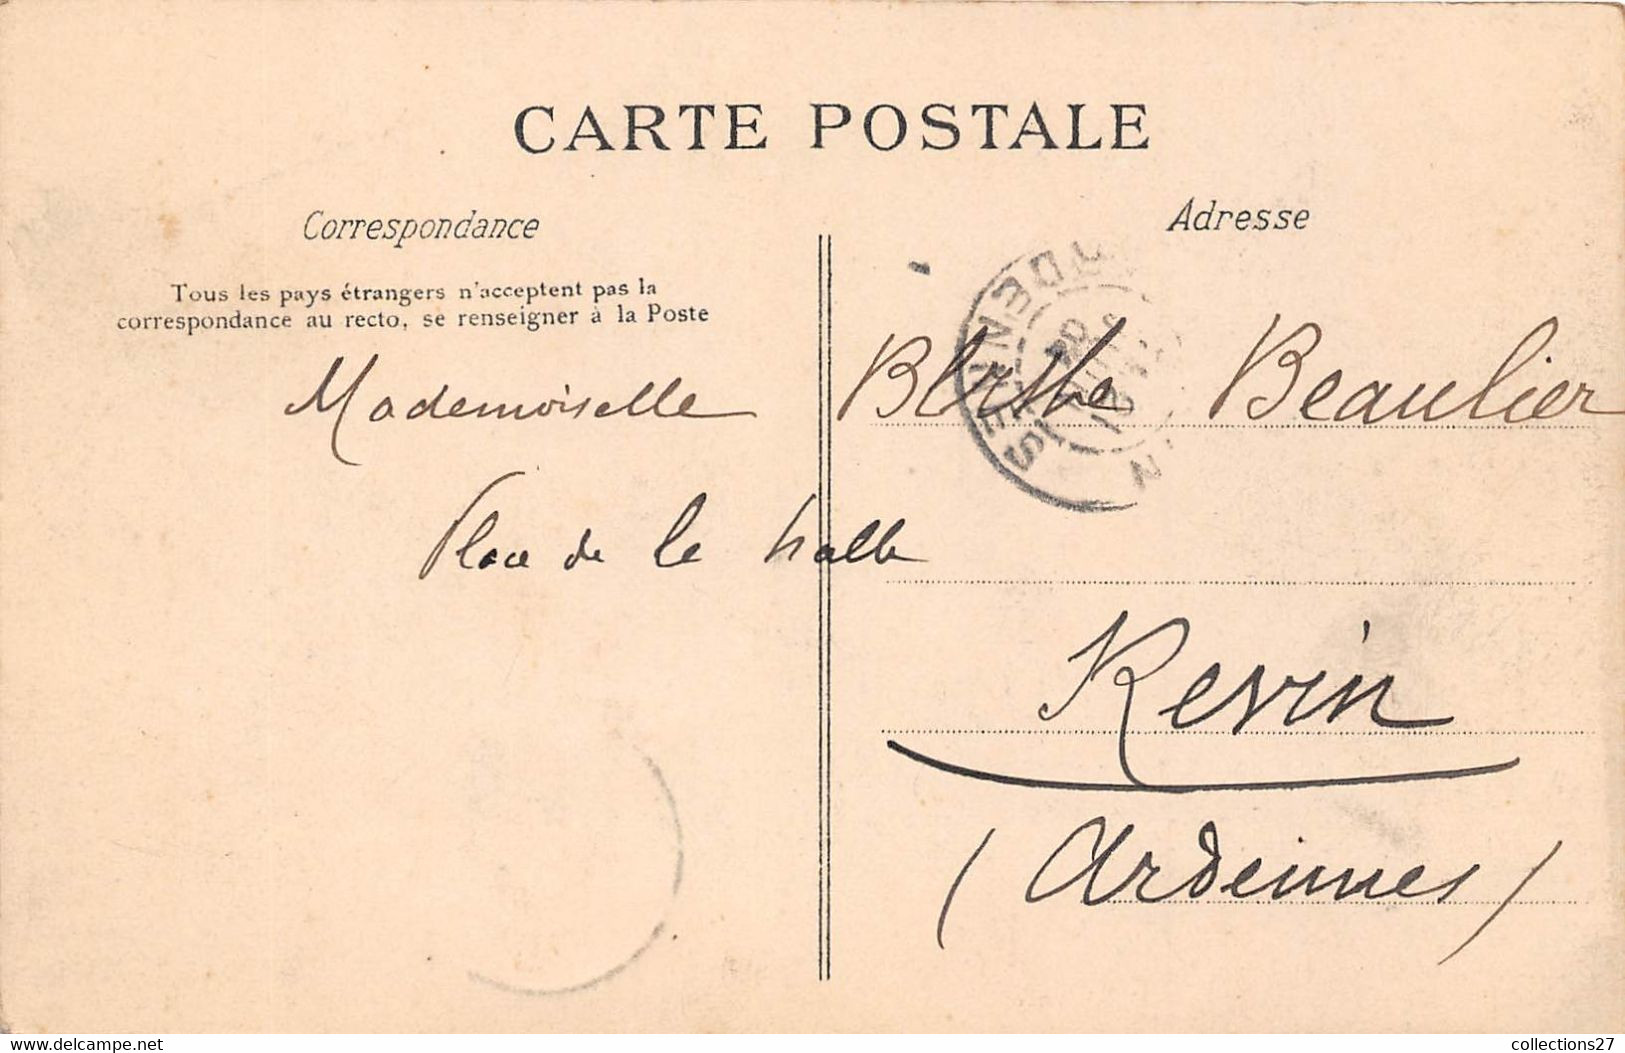 CARTE POSTALE
Correspondance
Adresse
Tous les pays étrangers n'acceptent pas la
correspondance au recto, se renseigner à la Poste
Mademoiselle Berthe Beaulier
Place de la halle
Revin
(Ardennes)
delcampe.net
collections27